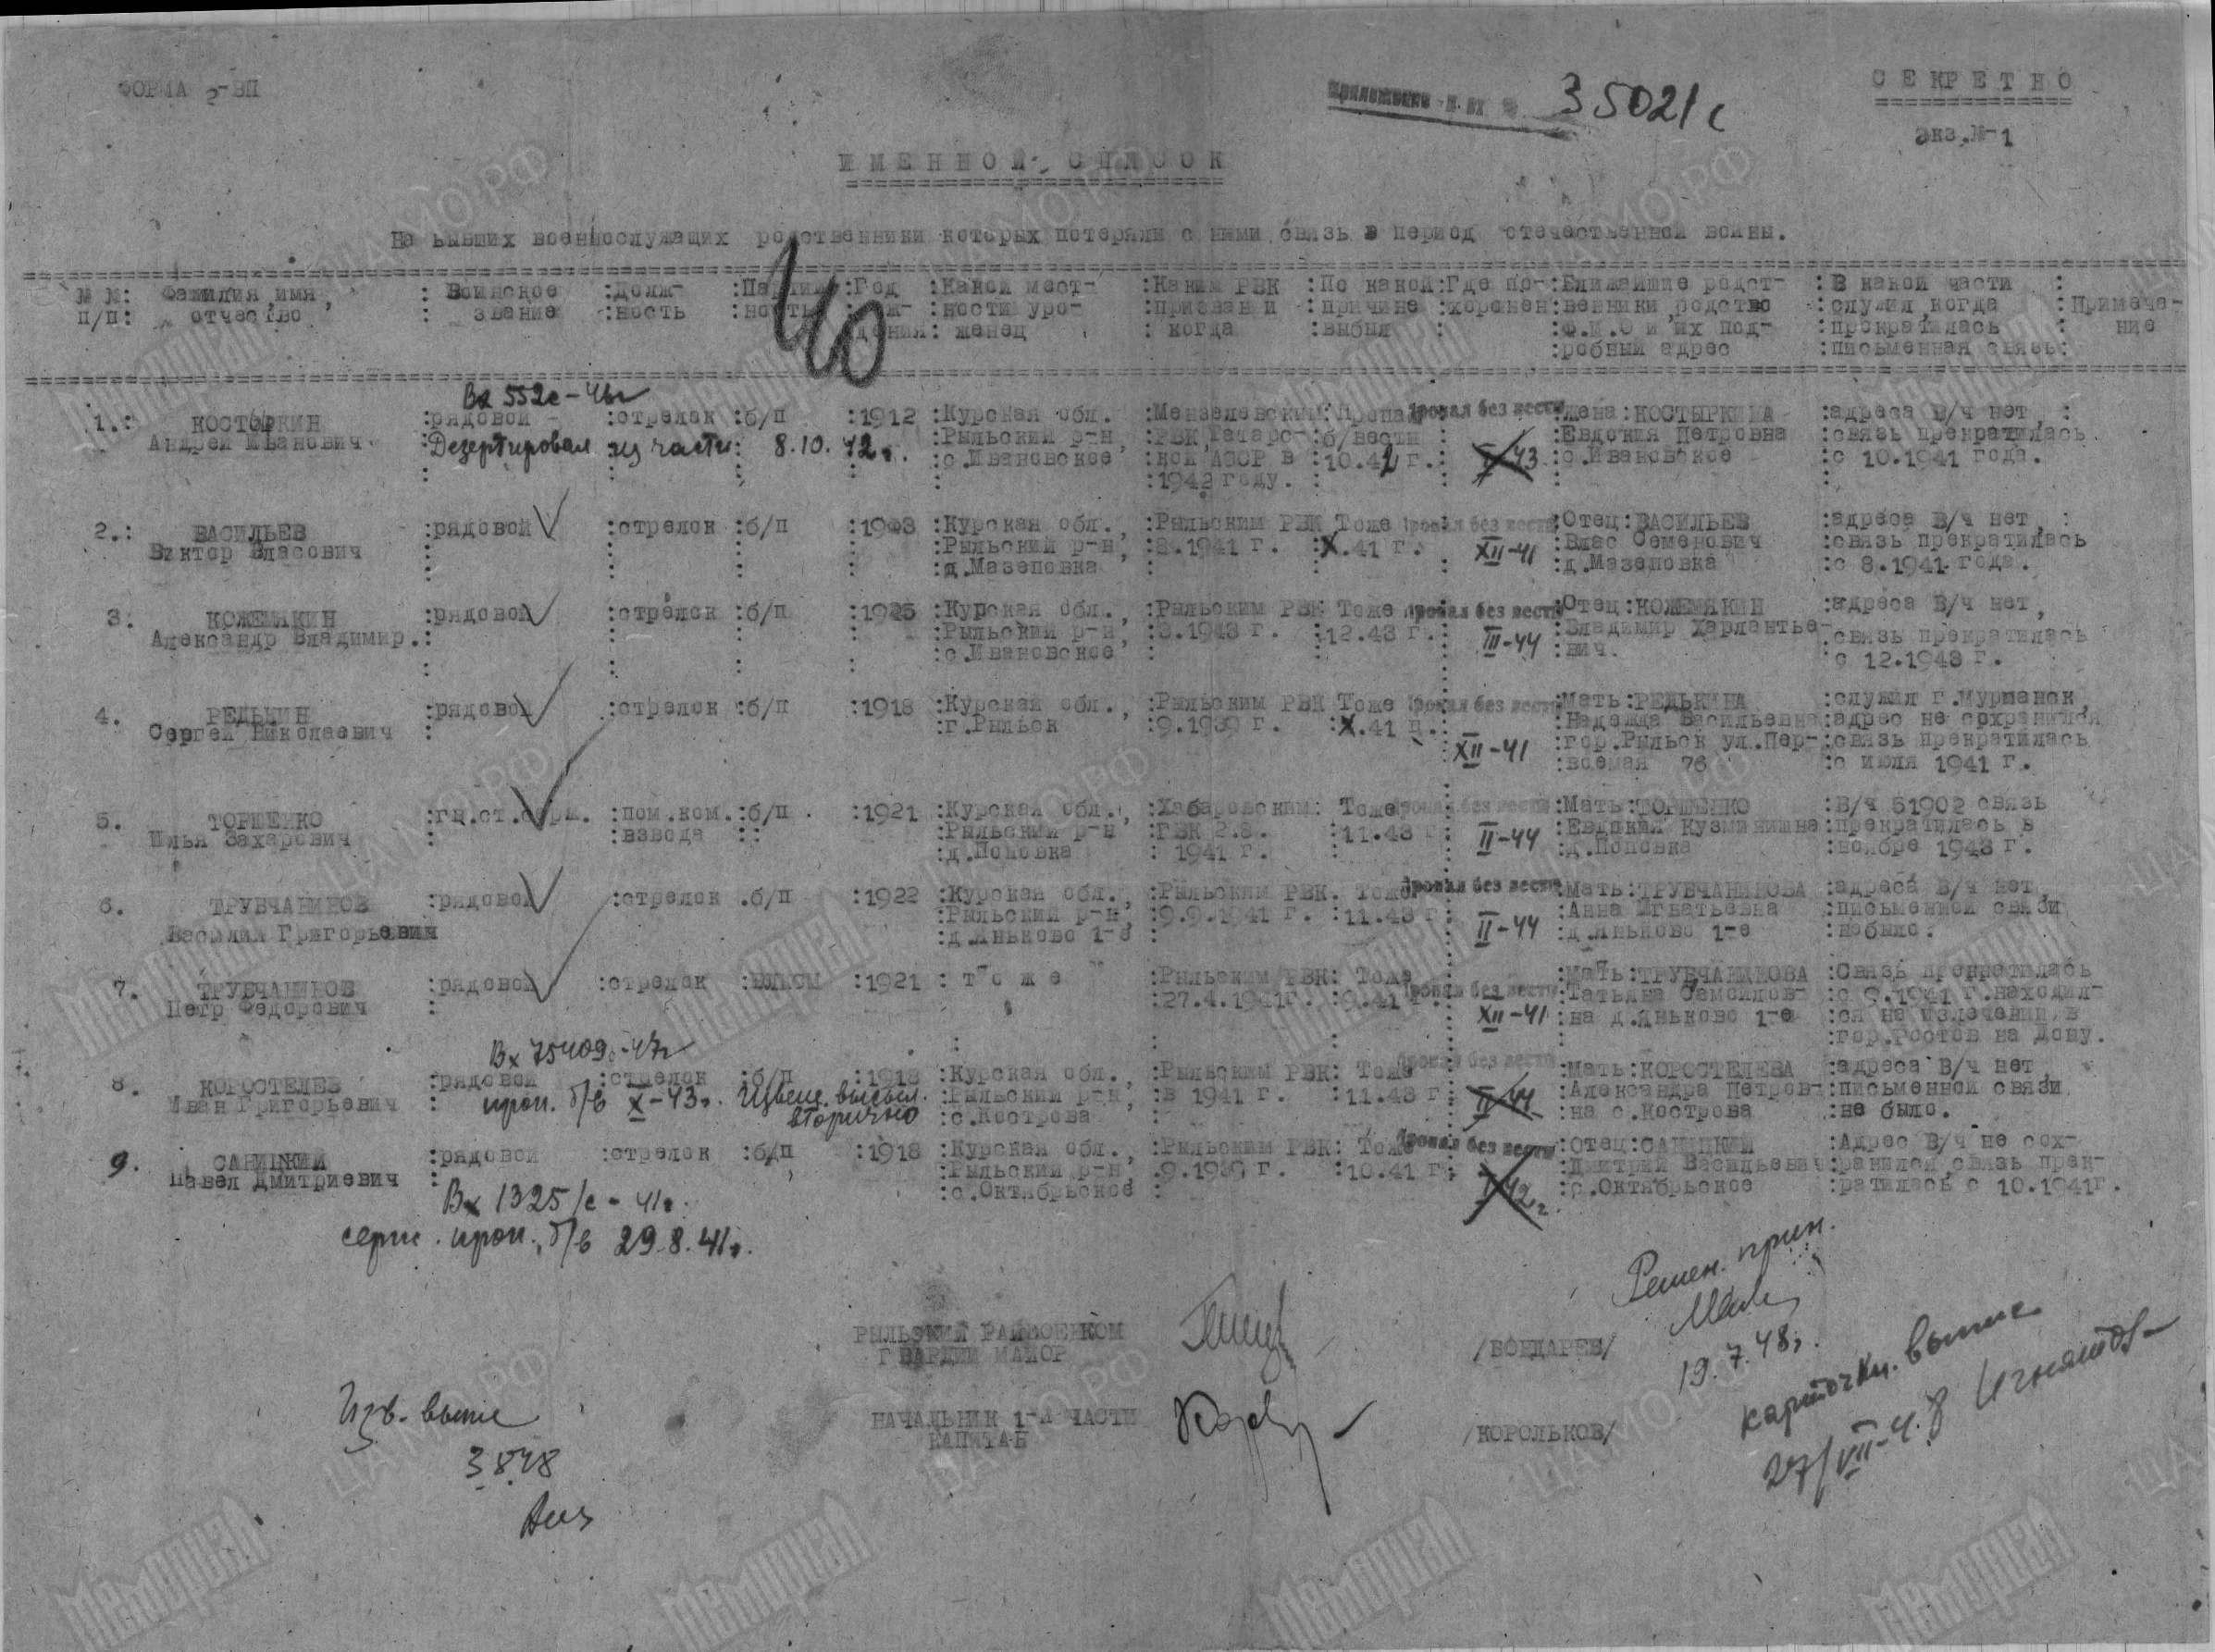 ФОРМА 2-ВП
35021с
СЕКРЕТНО
экз.№-1
ИМЕННОЙ СПИСОК
На бывших военнослужащих родственники которых потеряли с ними связь в период отечественной войны.
40
№ №: Фамилия, имя, : Воинское :Долж- :Год :Какой мест- :Каким РВК :По какой:Где по-:Ближайшие родст- :В какой части :
п/п: отчество : звание :ность :ность :ности уро- :призван и :причине :хоронен:венники, родство :служил, когда :Примеча-
дения: женец : когда :выбыл : :Ф.И.О и их под- :прекратилась : ние
:робный адрес :письменная связь:
Вх 552с-
1.: КОСТЫРКИН :рядовой :стрелок :б/п :1912 :Курская обл. :Мензелевским: Пропал Пропал без вести :Жена:КОСТЫРКИНА :адреса В/ч нет, :
Андрей Иванович :Дезертировал из части: 8.10.42г. :Рыльский р-н, :РВК, Татарс- :б/вести :Евдокия Петровна :связь прекратилась
:с.Ивановское :кой АССР в :10.42 г. :с.Ивановское :с 10.1941 года.
:1942 году.
2.: ВАСИЛЬЕВ :рядовой :стрелок :б/п :Курская обл., :Рыльским РВК Тоже Пропал без вести :Отец:ВАСИЛЬЕВ :адреса В/ч нет, :
Виктор Власович :Рыльский р-н, :8.1941 г. :X.41 г. XII-41 :Влас Семенович :связь прекратилась
:д.Мазеповка :д.Мазеповка :с 8.1941 года.
3. КОЖЕМЯКИН :рядовой :стрелок :б/п :1925 :Курская обл., :Рыльским РВК Тоже Пропал без вести :Отец:КОЖЕМЯКИН :адреса В/ч нет,
Александр Владимир.: :Рыльский р-н, :3.1943 г. :12.43 г. III-44 :Владимир Харлантье- :связь прекратилась
:с.Ивановское :вич. :с 12.1943 г.
4. РЕДЬКИН :рядовой :стрелок :б/п :1918 :Курская обл., :Рыльским РВК Тоже Пропал без вести :Мать:РЕДЬКИНА :служил г.Мурманск,
Сергей Николаевич :г.Рыльск :9.1939 г. :X.41 г. XII-41 :Надежда Васильевна:адрес не сохранился
:гор.Рыльск ул.Пер- :связь прекратилась
:вомая 76 :с июля 1941 г.
5. ТОРШЕНКО :гв.ст.серж. :пом.ком. :б/п :1921 :Курская обл., :Хабаровским: Тоже Пропал без вести :Мать:ТОРШЕНКО :В/ч 51902 связь
Илья Захарович :взвода :Рыльский р-н :ГВК 2.8. :11.43 г II-44 :Евдокия Кузминишна :прекратилась в
:д.Поповка : 1941 г. :д.Поповка :ноябре 1943 г.
6. ТРУБЧАНИНОВ :рядовой :стрелок .б/п :1922 :Курская обл., :Рыльским РВК. Тоже Пропал без вести :Мать:ТРУБЧАНИНОВА :адреса В/ч нет,
Василий Григорьевич :Рыльский р-н, :9.9.1941 г. :11.43 г II-44 :Анна Игнатьевна :письменной связи
:д.Яньково 1-е :д.Яньково 1-е :небыло.
7. ТРУБЧАНИНОВ :рядовой :стрелок :ВЛКСМ :1921 : т о ж е :Рыльским РВК: Тоже :Мать:ТРУБЧАНИНОВА :Связь прекратилась
Петр Федорович :27.4.1941г. :9.41 г. Пропал без вести XII-41 :Татьяна Самойлов- :с 9.1941 г. находил-
:на д.Яньково 1-е :ся на излечении в
:гор.Ростов на Дону.
Вх 75409с-47г
8. КОРОСТЕЛЕВ :рядовой :стрелок :б/п :Курская обл., :Рыльским РВК: Тоже Пропал без вести :Мать:КОРОСТЕЛЕВА :адреса В/ч нет,
Иван Григорьевич : проп. б/в X-43г. Извещ. высыл. :Рыльский р-н, :в 1941 г. :11.43 г. II-44 :Александра Петров- :письменной связи
вторично :с.Кострова :на с.Кострова :не было.
9. САНИЦКИЙ :рядовой :стрелок :б/п :1918 :Курская обл., :Рыльским РВК: Тоже Пропал без вести :Отец:САНИЦКИЙ :Адрес В/ч не сох-
Павел Дмитриевич :Рыльский р-н, :9.1939 г. :10.41 г. :Дмитрий Васильевич:ранился, связь прек-
Вх 1325/с-41г. :с.Октябрьское :с.Октябрьское :ратилась с 10.1941г.
серж. проп. б/в 29.8.41г.
Решен. прин.
19.7.48г.
РЫЛЬСКИЙ РАЙВОЕНКОМ
ГВАРДИИ МАЙОР /БОНДАРЕВ/
НАЧАЛЬНИК 1-й ЧАСТИ
КАПИТАН /КОРОЛЬКОВ/
Карточки. выпис.
27/VII-48 Игнатов
Изв. выпис
3.8.48